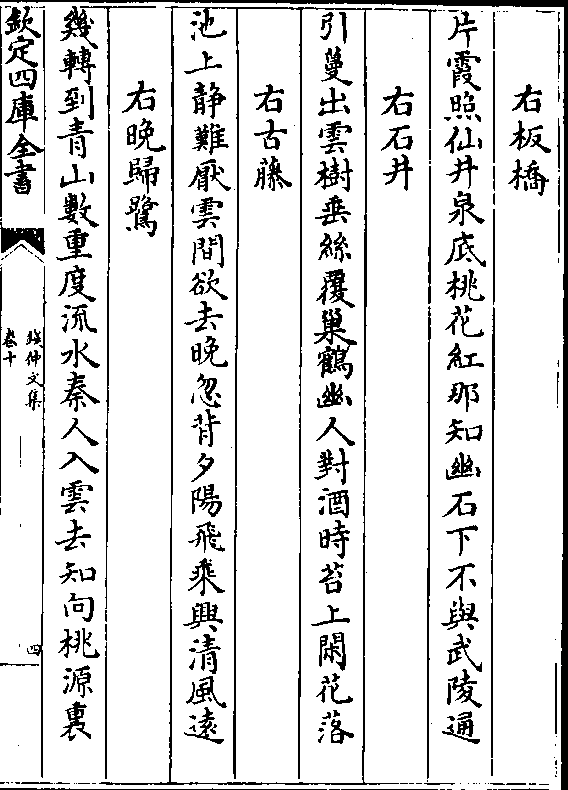 右板橋
片霞照仙井泉底桃花紅那知幽石下不與武陵通
右石井
引蔓出雲樹垂絲覆巢鶴幽人對酒時苔上閑花落
右古藤
池上静難厭雲間欲去晚忽背夕陽飛乘興清風遠
右晚歸鷺
幾轉到青山數重度流水秦人入雲去知向桃源裏
欽定四庫全書
錢仲文集
卷十
四